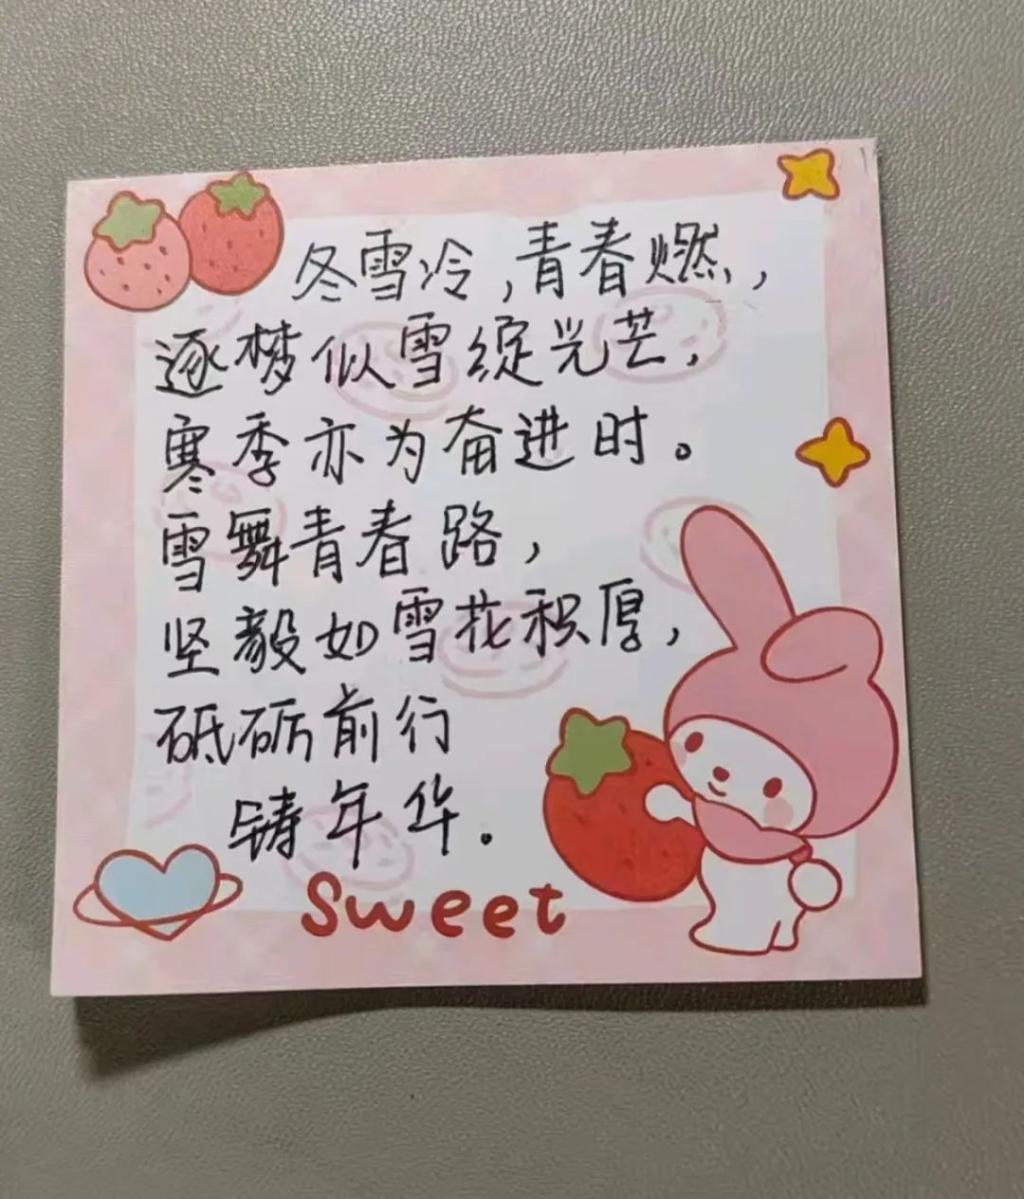 冬雪冷,青春燃,
逐梦似雪绽光芒,
寒季亦为奋进时。
雪舞青春路,
坚毅如雪花积厚,
砥砺前行
铸年华。
Sweet